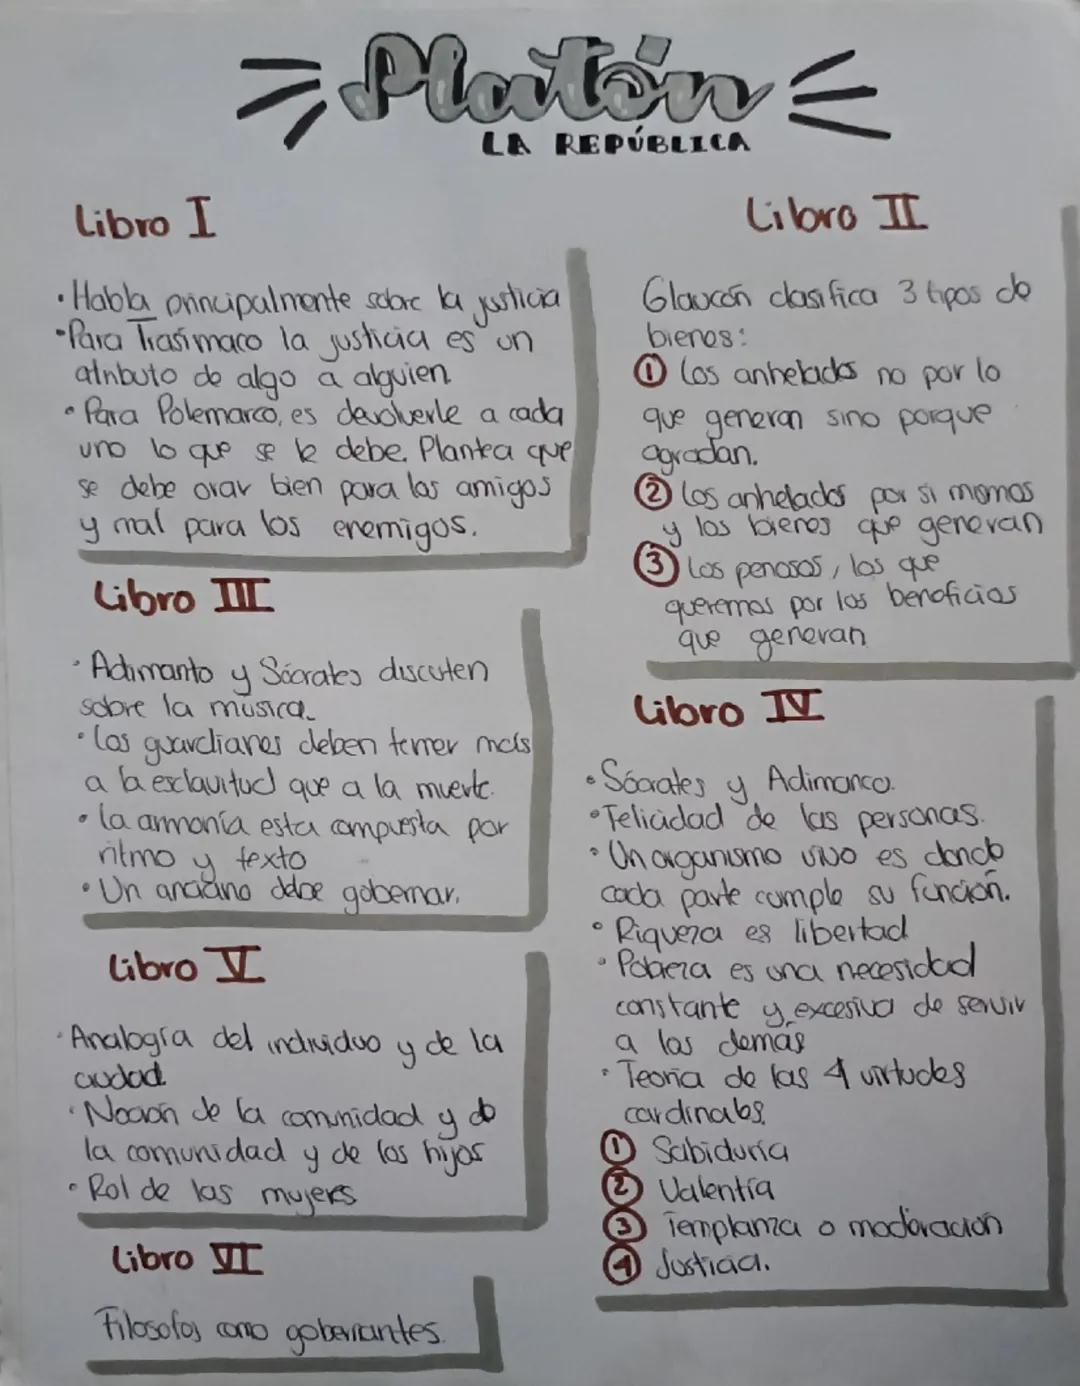 Platón
LA REPÚBLICA
Libro I
• Habla principalmente sobre la justicia
• Para Trasímaco la justicia es un
atributo de algo a alguien.
• Para Polemarco, es devolverle a cada
uno lo que se le debe. Plantea que
se debe orar bien para los amigos
y mal para los enemigos.
Libro II
Glaucón clasifica 3 tipos de
bienes:
① Los anhelados no por lo
que generan sino porque
agradan.
② Los anhelados por si mismos
y los bienes que generan
③ Los penosos, los que
queremos por los beneficios
que generan
Libro III
• Adimanto y Sócrates discuten
sobre la música.
• Los guardianes deben temer más
a la esclavitud que a la muerte.
• La armonía esta compuesta por
ritmo y texto
• Un anciano debe gobernar.
Libro IV
• Sócrates y Adimanco.
• Felicidad de las personas.
• Un organismo vivo es donde
cada parte cumple su función.
• Riqueza es libertad
• Pobreza es una necesidad
constante y excesiva de servir
a los demás
• Teoría de las 4 virtudes
cardinales.
① Sabiduría
② Valentía
③ Templanza o moderación
④ Justicia.
Libro V
• Analogía del individuo y de la
ciudad.
• Noción de la comunidad y de
la comunidad y de los hijos
• Rol de las mujeres
Libro VI
Filosofos como gobernantes.